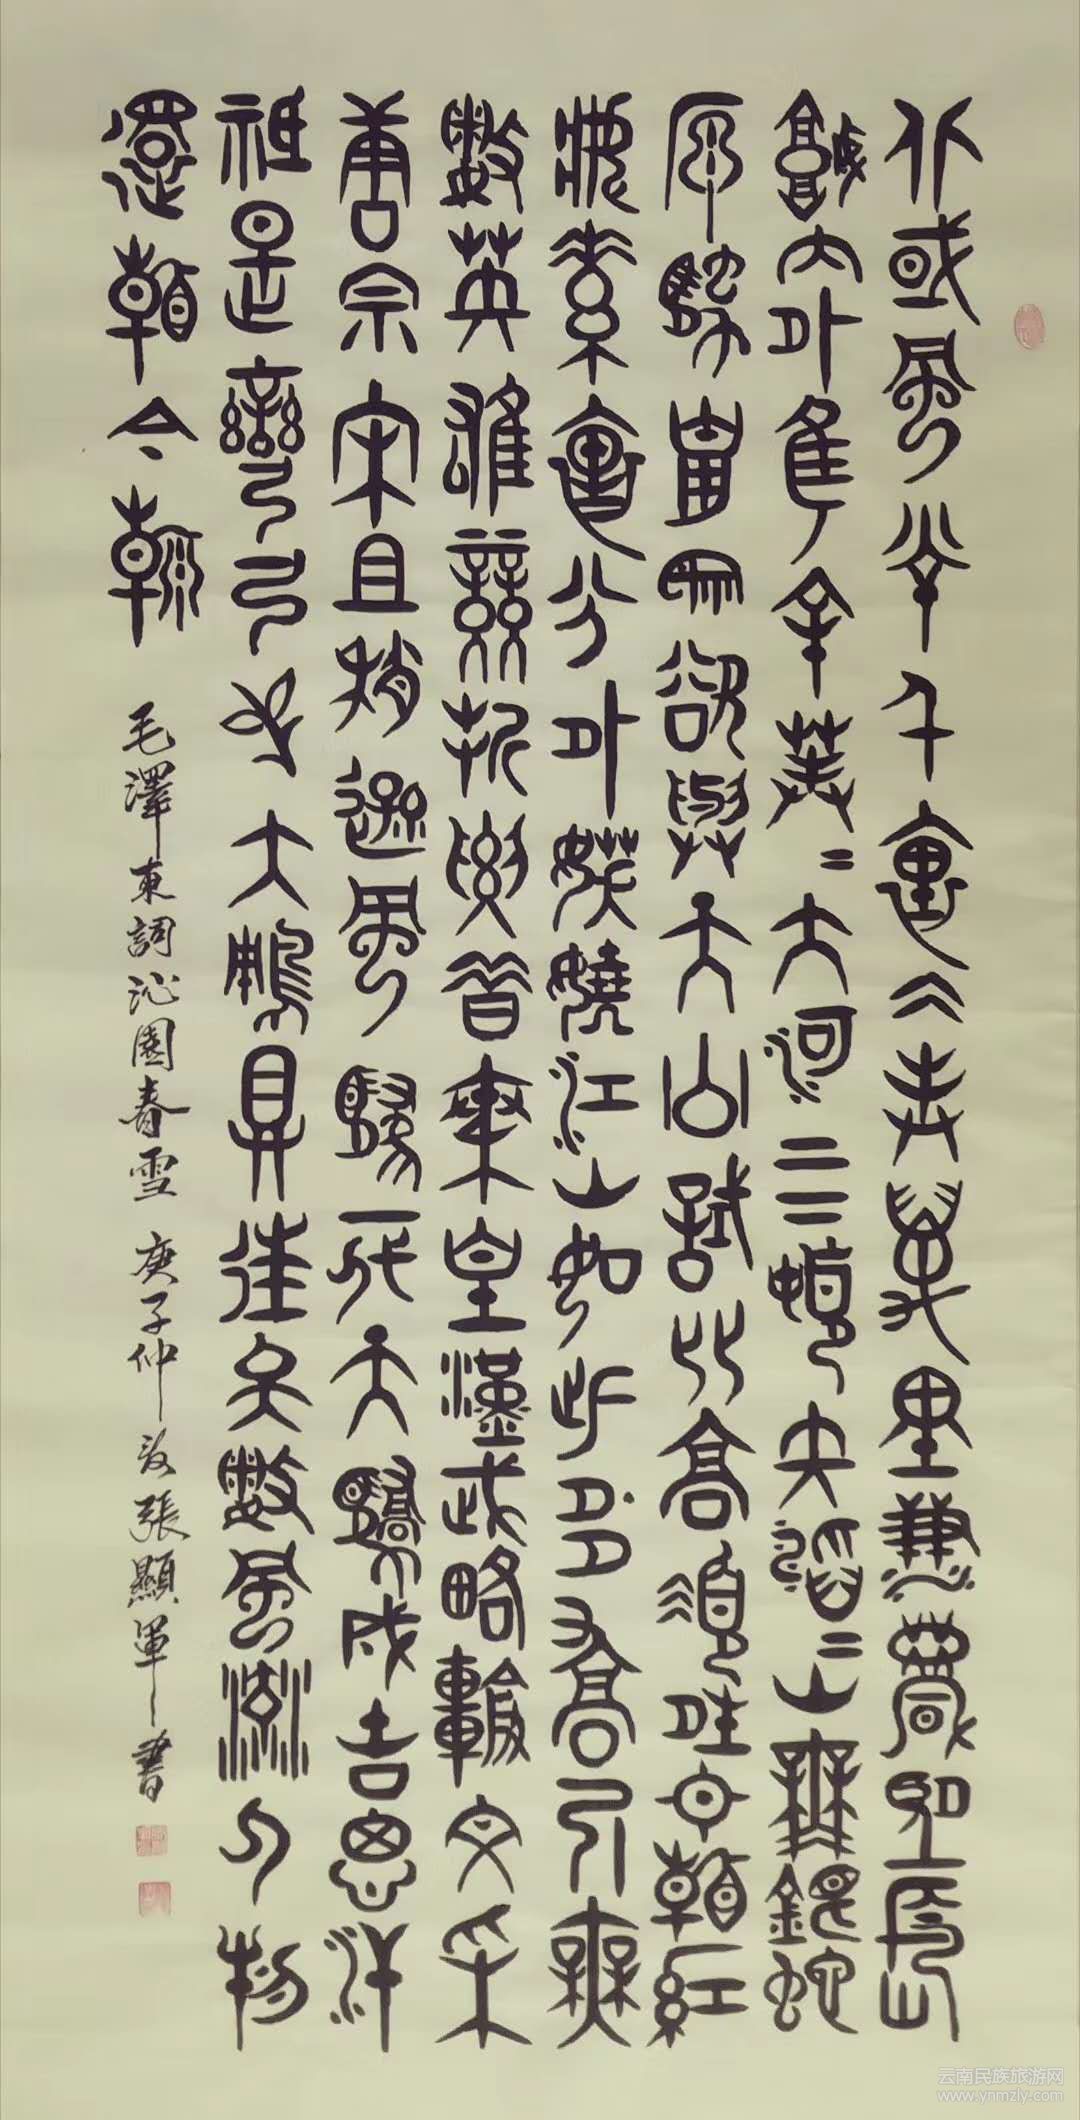 北國風光千里冰封萬里雪飄望長
城內外惟余莽〻大河上下頓失滔〻山舞銀蛇
原馳蠟象欲與天公試比高須晴日看紅
裝素裹分外妖嬈江山如此多嬌引無
數英雄競折腰惜秦皇漢武略輸文采
唐宗宋祖稍遜風騷一代天驕成吉思汗
祗是彎弓射大雕俱往矣數風流人物
還看今朝
毛澤東詞沁園春雪 庚子仲夏張顯軍書
云南民族旅游网
www.ynmzly.com